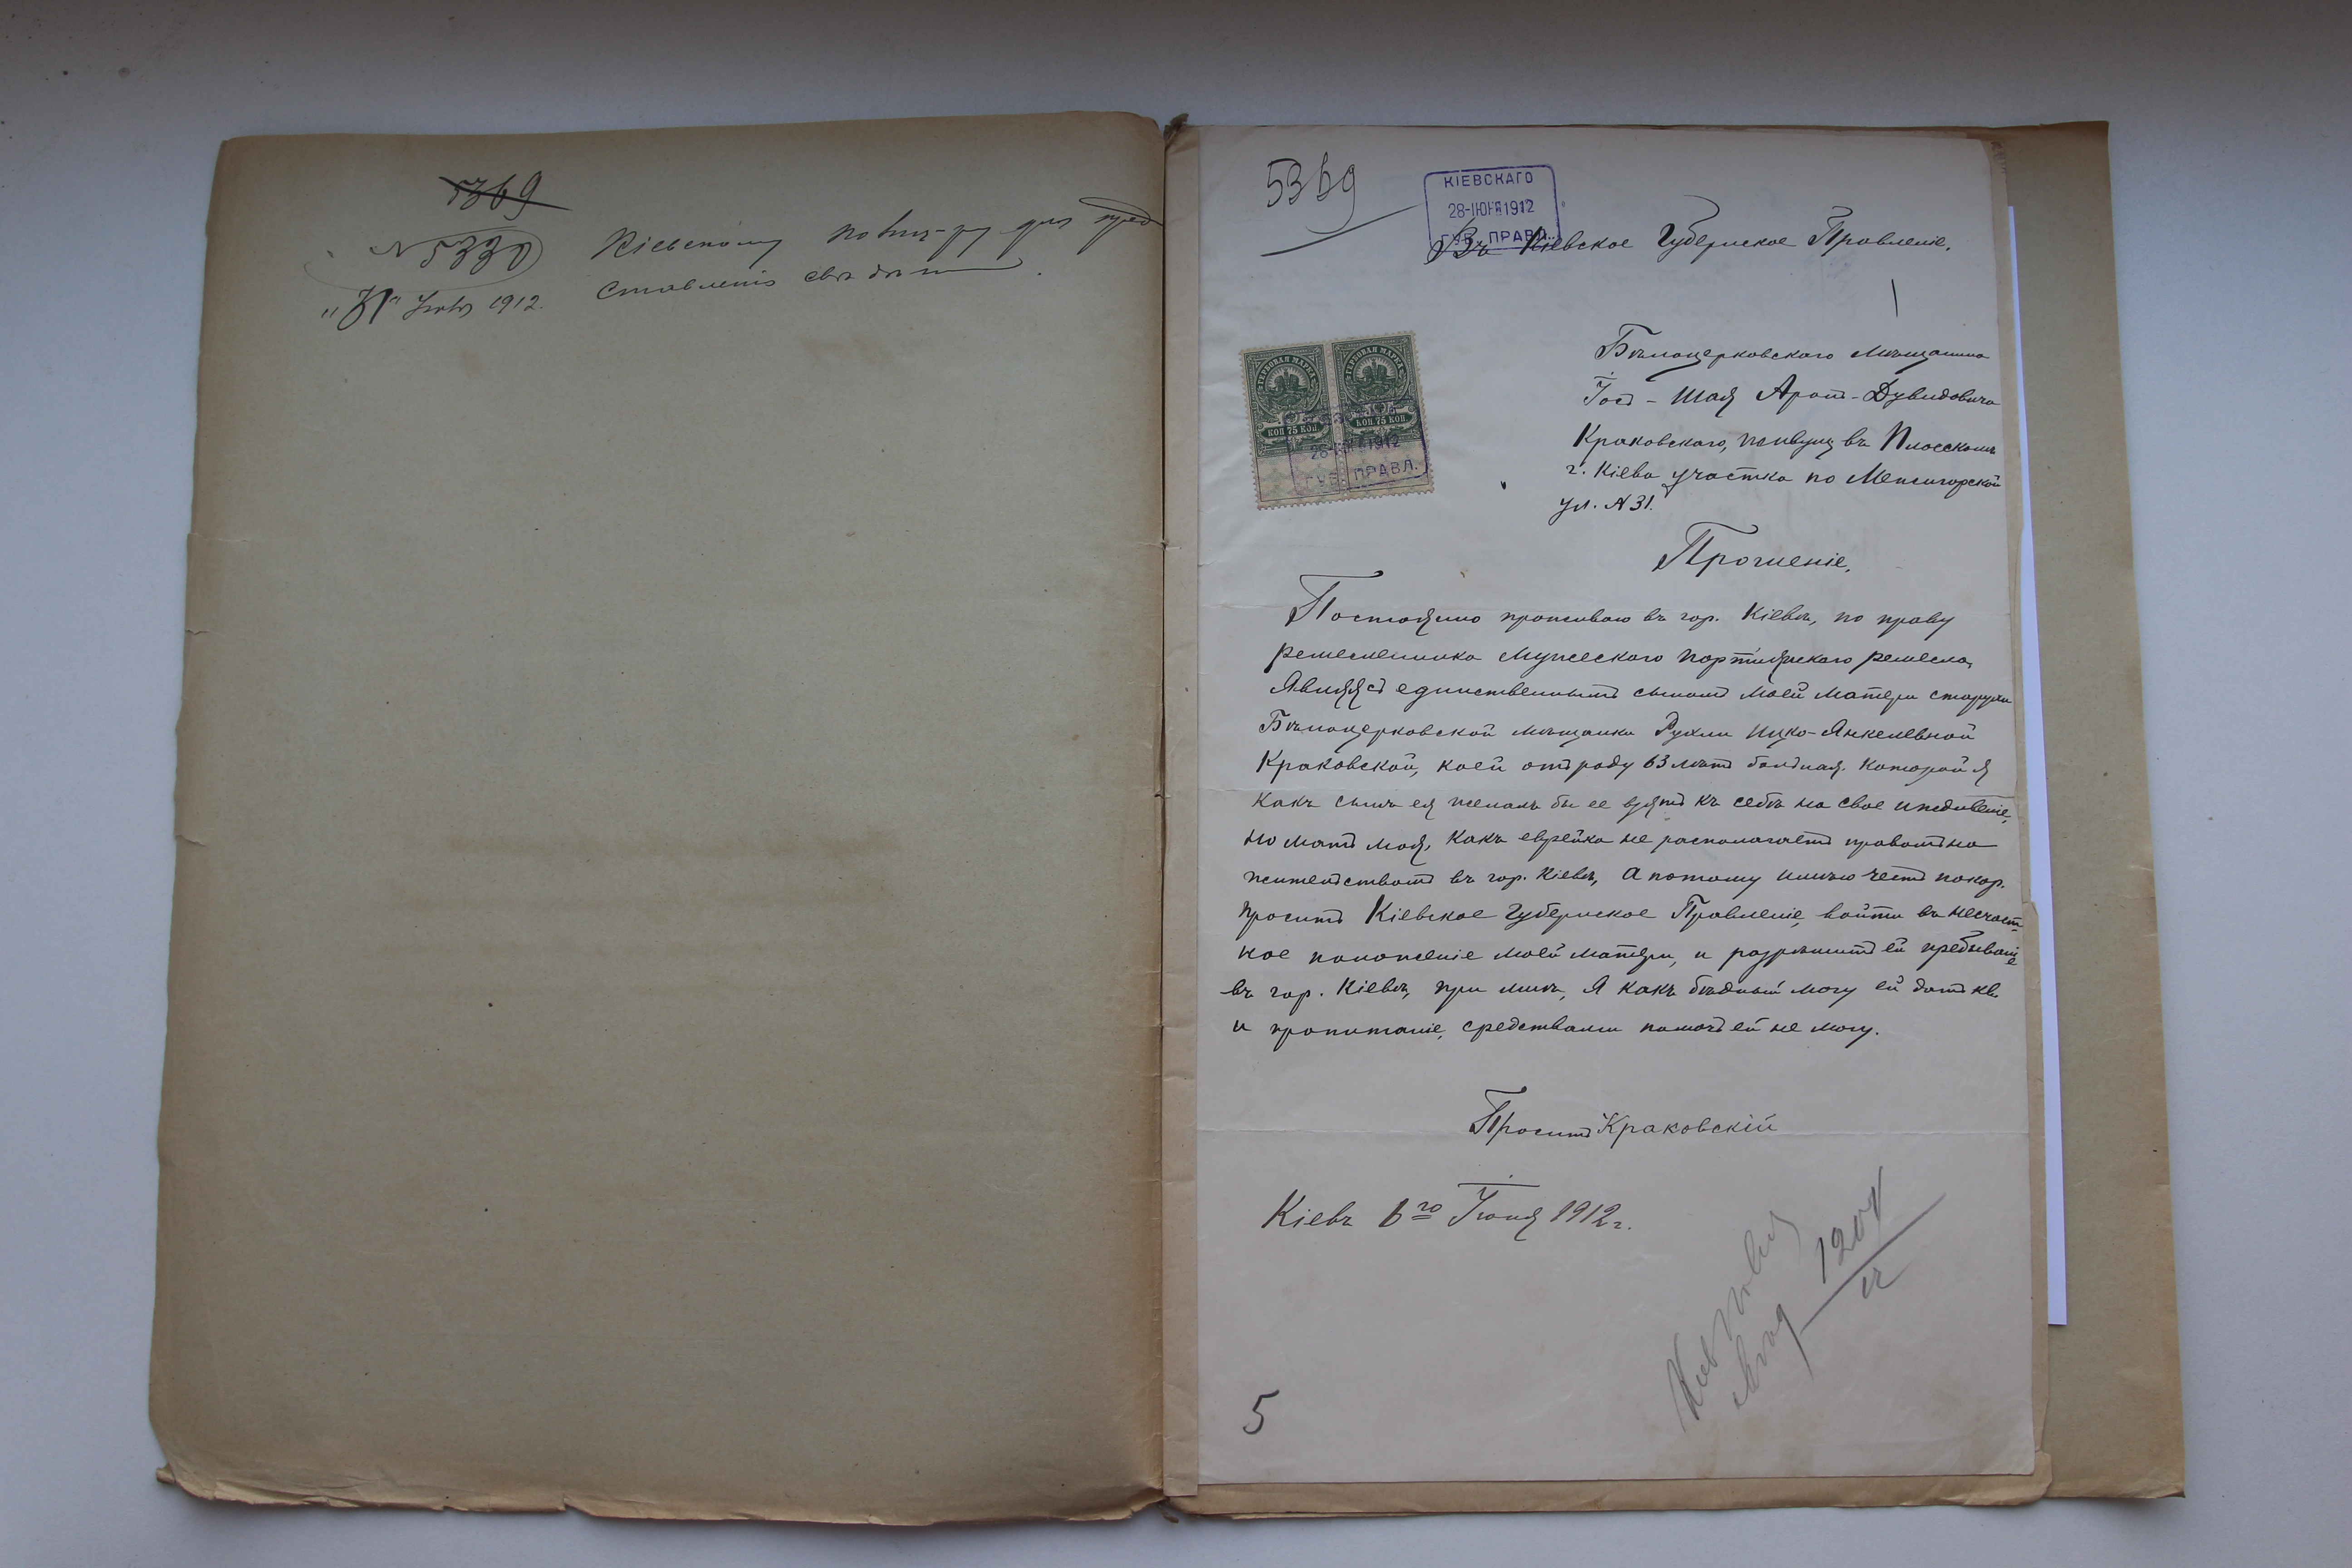 5369
№ 5330 Кіевскому для пред
ставленія
1912.
5369
КІЕВСКАГО
28-ІЮНЯ 1912
ГУБ. ПРАВЛ.
Въ Кіевское Губернское Правленіе.
Бѣлоцерковскаго мѣщанина
Арон-Дувидовича
Краковскаго, живущ въ Плосскомъ
г. Кіева участка по Межигорской
ул. № 31.
ГЕРБОВАЯ МАРКА ГЕРБОВАЯ МАРКА
КОП 75 КОП КОП 75 КОП
28-ІЮНЯ 1912
ГУБ. ПРАВЛ.
Прошеніе.
Постоянно проживаю въ гор. Кіевѣ, по праву
ремесленника мужеского портняжскаго ремесла,
Являясь единственнымъ сыномъ моей матери старухи
Бѣлоцерковской мѣщанки Рухли Ицко-Янкелевной
Краковской, коей отъ роду 63 лѣтъ больная. Которой я
какъ сынъ ея желалъ бы ее взять къ себѣ на свое иждивеніе,
но мать моя, какъ еврейка не располагаетъ правомъ на
жительствомъ въ гор. Кіевѣ, А потому имѣю честь покор.
просить Кіевское Губернское Правленіе, войти въ несчаст-
ное положеніе моей матери, и разрѣшить ей пребываніе
въ гор. Кіевѣ, при мнѣ, Я какъ бѣдный могу ей дать кв.
и пропитаніе, средствами помочь ей не могу.
Проситъ Краковскій
Кіевъ 6го Іюня 1912 г.
5